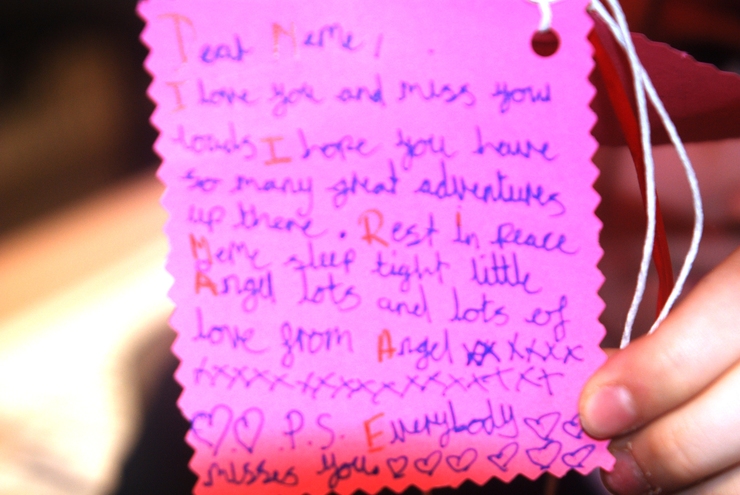 Dear Meme!
I love you and miss you
loads I hope you have
so many great adventures
up there. Rest in Peace
Meme sleep tight little
Angel lots and lots of
love from Angel xxxxxx
xxxxxxxxxxxxxxxx
♡♡ P.S. Everybody ♡♡
misses you. ♡♡♡♡♡♡